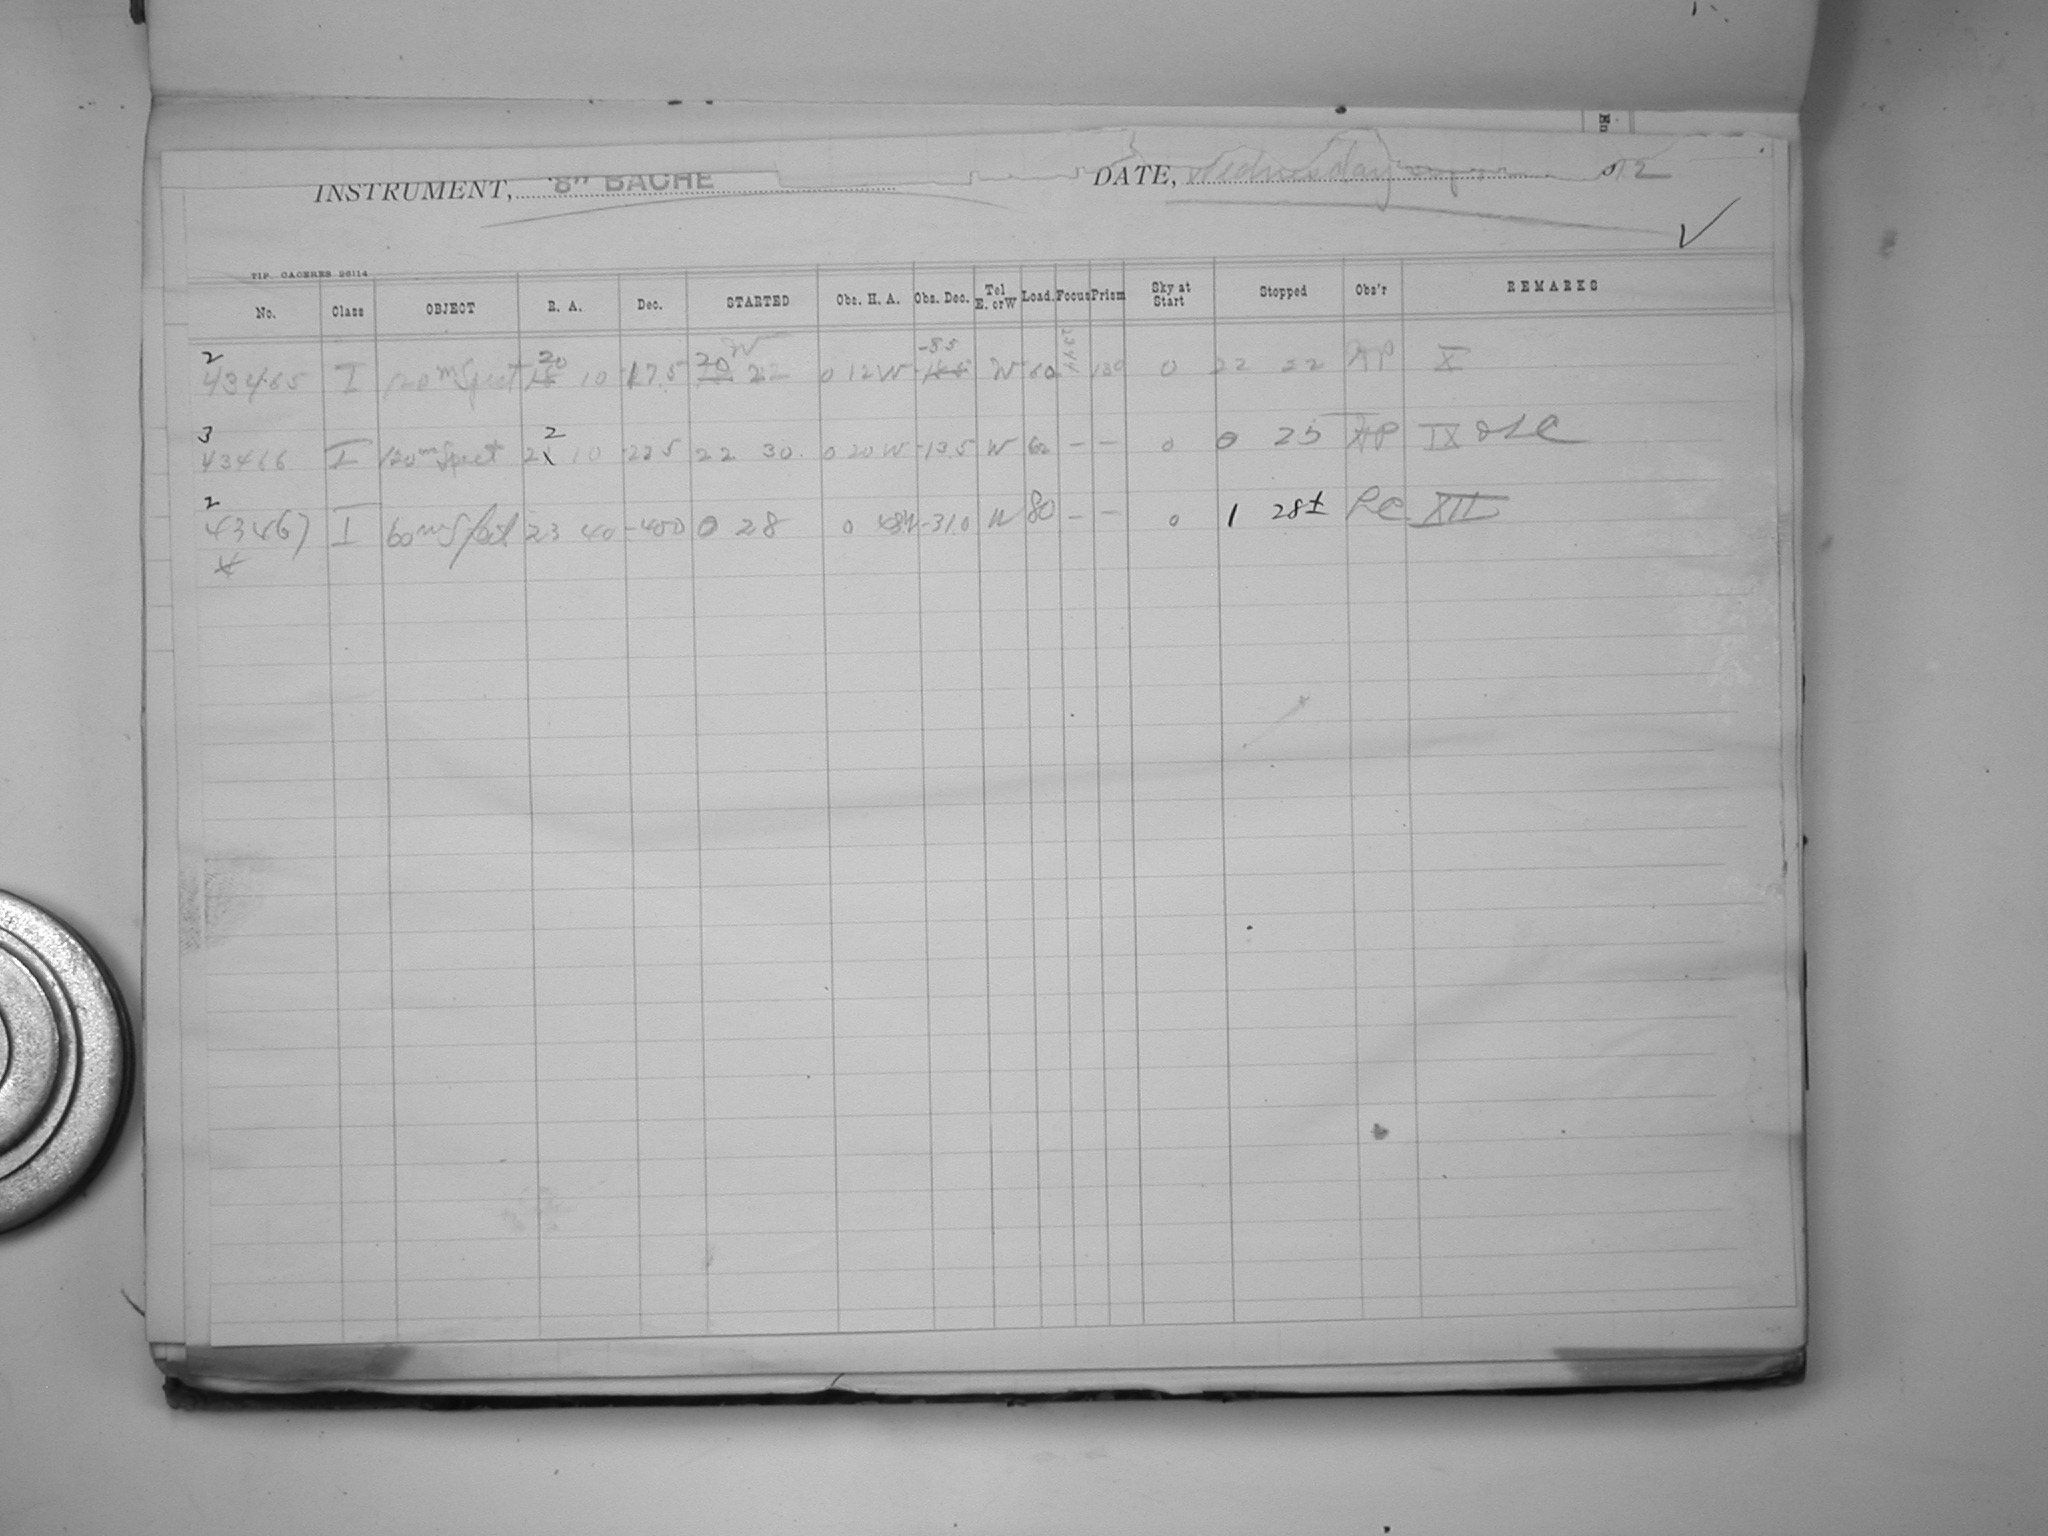 En
INSTRUMENT, 8" BACHE DATE, Wednesday 12
TIP. CACERES 26114
No. Class OBJECT R. A. Dec. STARTED Obs. H. A. Obs. Dec. Tel E. or W Load. Focus Prism Sky at Start Stopped Obs'r REMARKS
2 20 W -85
43465 I 120m Spect 18 10 -17.5 20 22 0 12 W W 60 130 0 22 22 AP X
3 2
43466 I 120m Spect 21 10 -22.5 22 30 0 20 W -13.5 W 60 — — 0 0 25 AP IX
2
43467 I 60m Spect 23 40 -40.0 0 28 0 48W -31.0 W 80 — — 0 1 28± XII